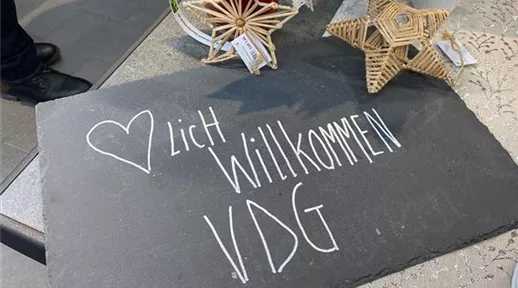 ♡LICH
WILLKOMMEN
VDG